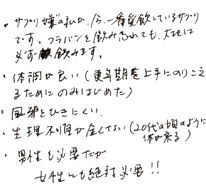 ・サプリ嬢の私が、今、一番愛飲しているサプリ
です。フラバンを飲み忘れても、これは
必ず飲みます。
・体調が良い（更年期を上手にのりこえ
るためにのみはじめた）
・風邪をひきにくい
・生理不順が全くない（20代の頃のように
体が戻る）
・男性も必要だが
女性にも絶対必要!!